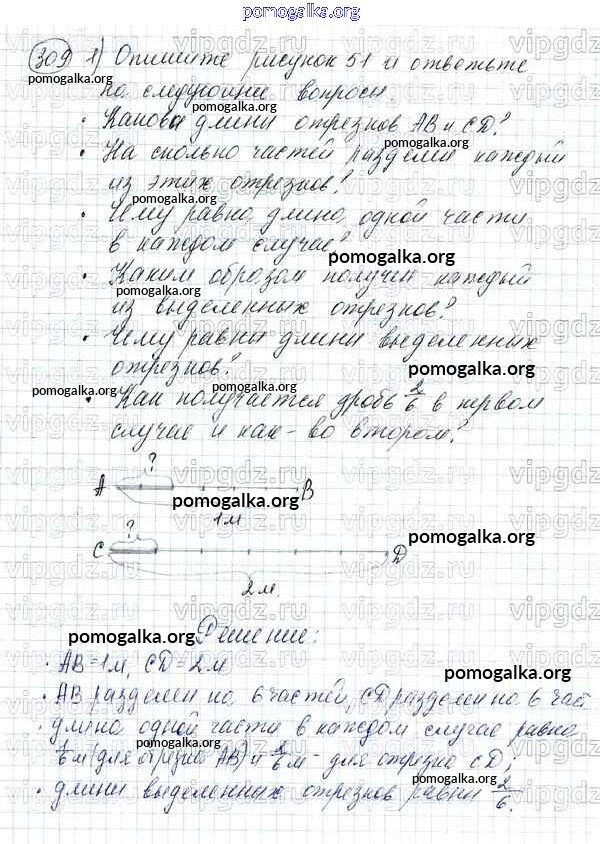 pomogalka.org
309 1) Опишите рисунок 51 и ответьте
на следующие вопросы.
pomogalka.org
· Каковы длины отрезков AB и CD?
· На сколько частей разделен каждый
pomogalka.org
из этих отрезков?
· Чему равна длина одной части
в каждом случае?
pomogalka.org
· Каким образом получен каждый
pomogalka.org
из выделенных отрезков?
· Чему равны длины выделенных
отрезков?
pomogalka.org
pomogalka.org
· Как получается дробь 2/6 в первом
случае и как - во втором?
?
A B
pomogalka.org
1м
?
pomogalka.org
C D
2м
Решение:
pomogalka.org
· AB=1м, CD=2м
pomogalka.org
· AB разделен на 6 частей, CD разделен на 6 час
· длина одной части в каждом случае равна
pomogalka.org
1/6 м (для отрезка AB) и 2/6 м - для отрезка CD;
pomogalka.org
· длины выделенных отрезков равны 2/6.